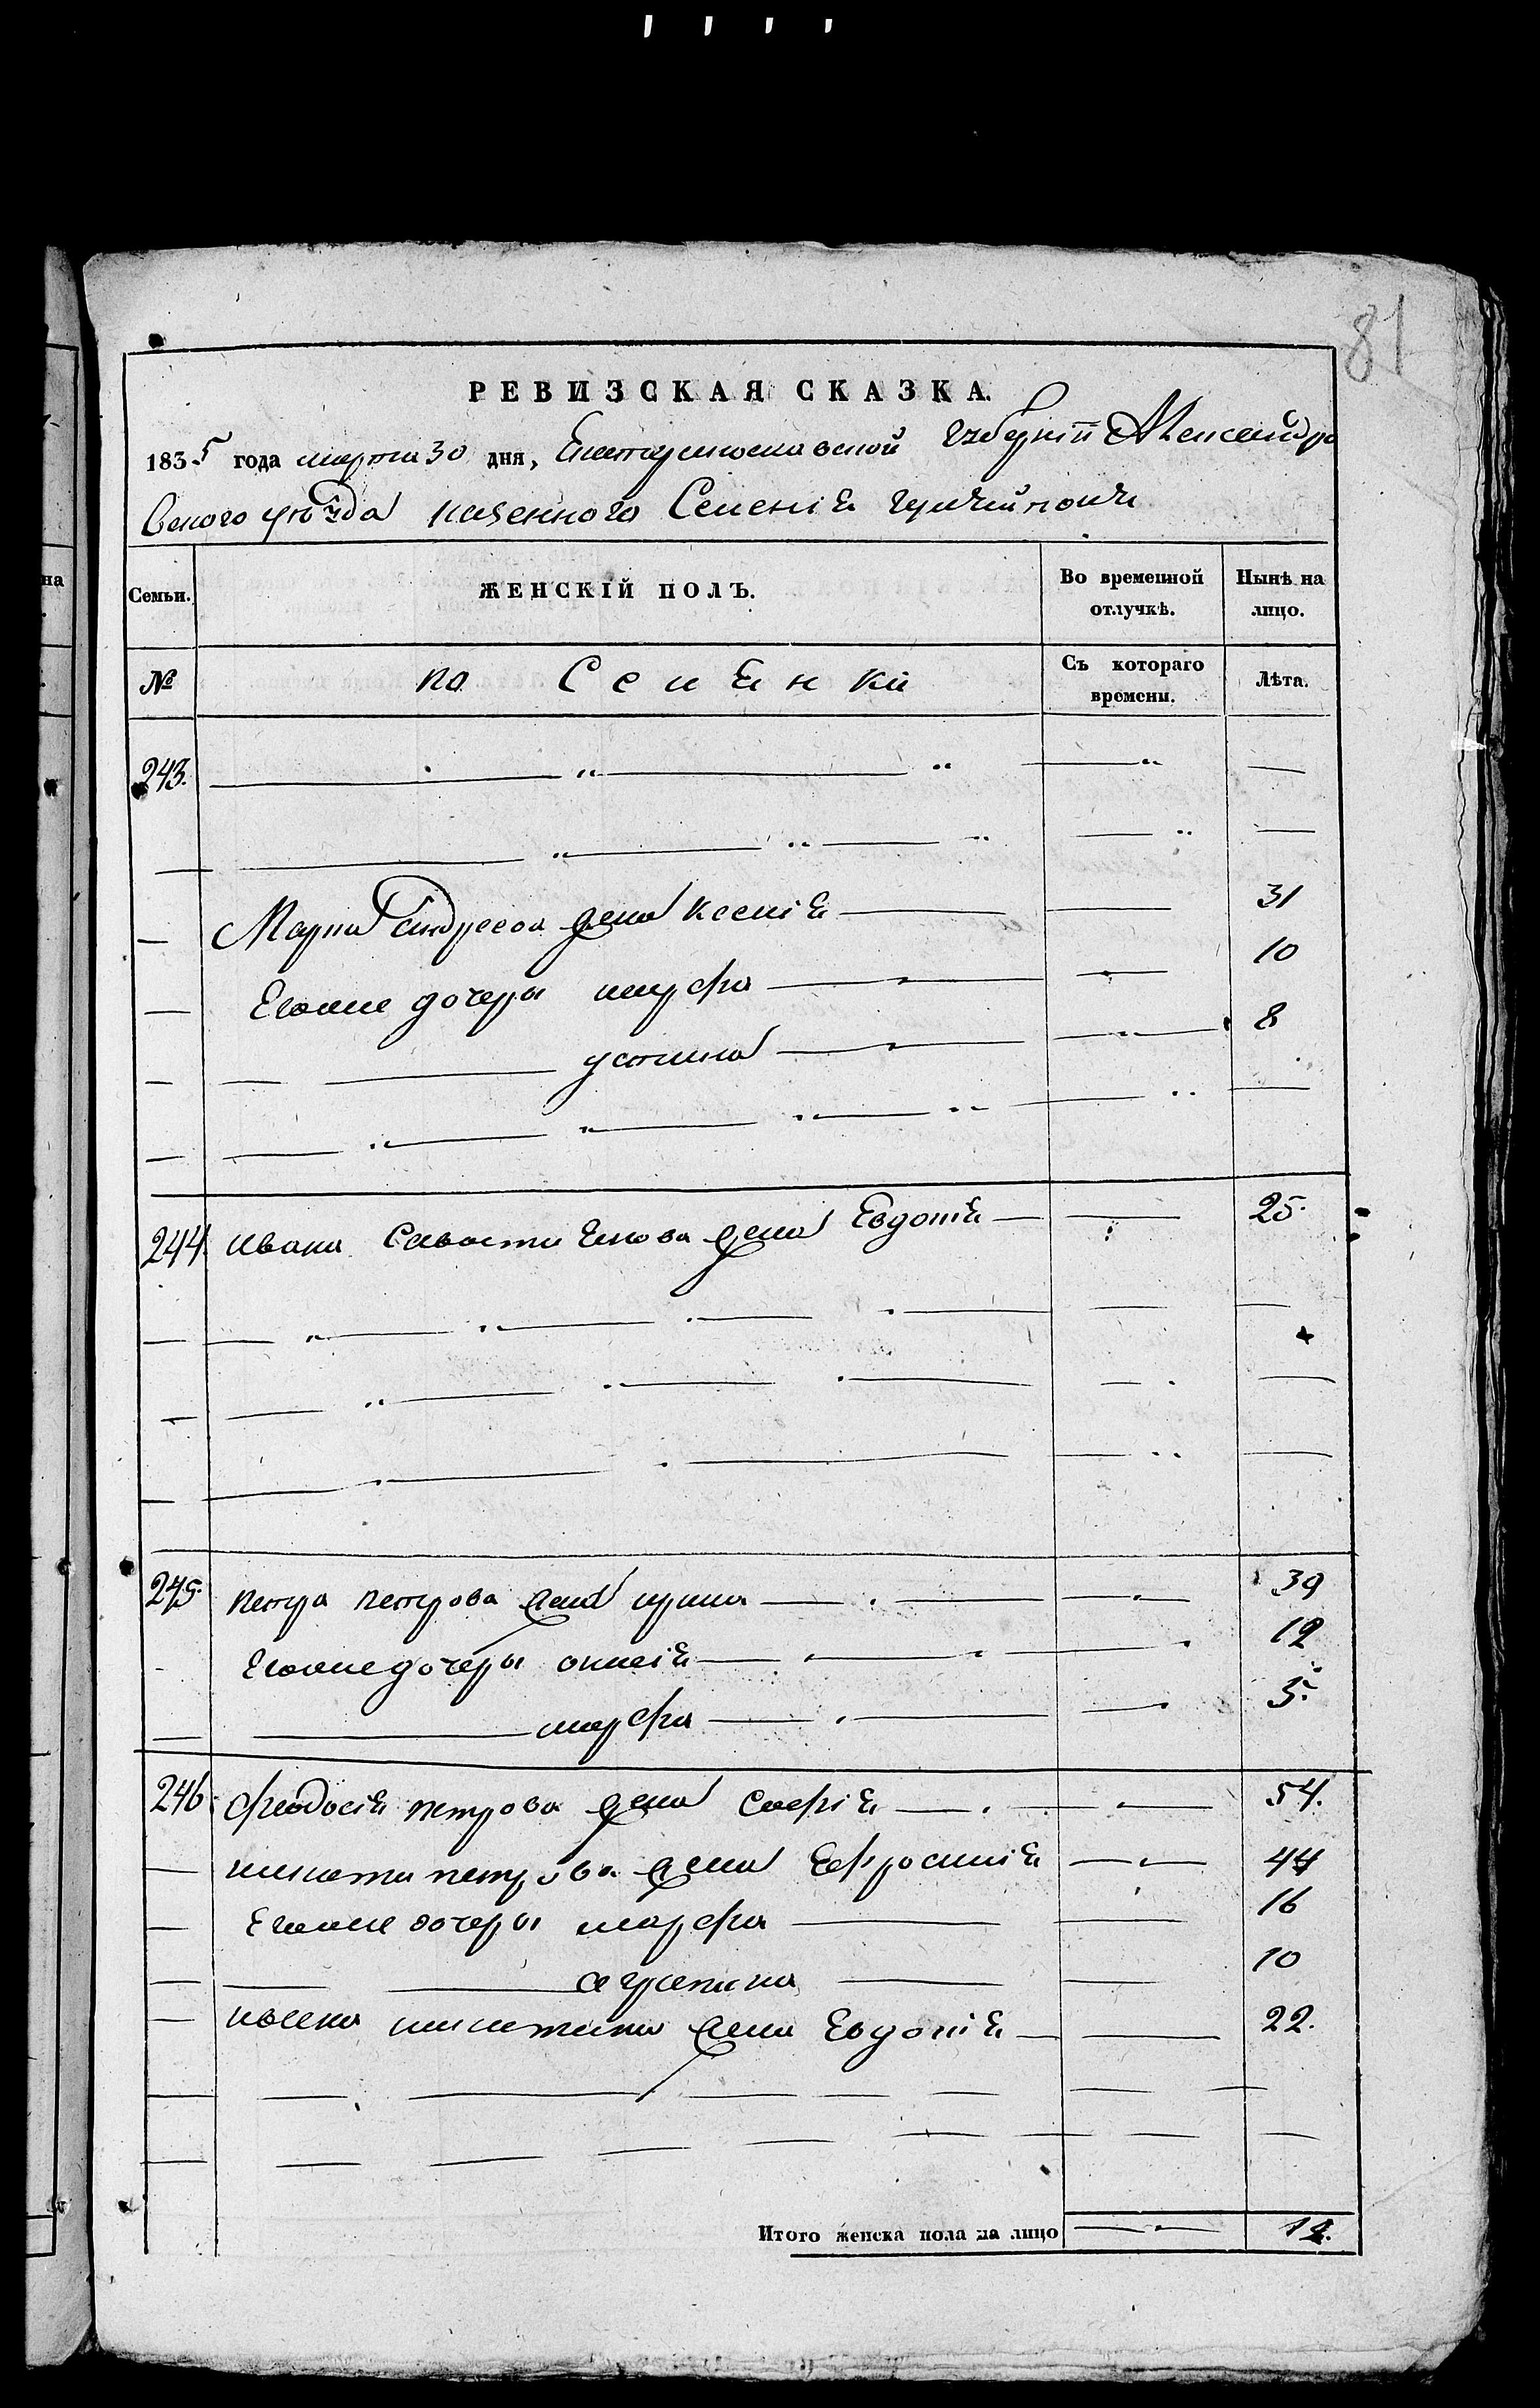 81
РЕВИЗСКАЯ СКАЗКА.
1835 года марта 30 дня, Екатеринославской губернии Александро
вского уѣзда казенного Селенія
Семьи. ЖЕНСКІЙ ПОЛЪ. Во временной отлучкѣ. Нынѣ на лицо.
№ Съ котораго времени. Лѣта.
243.
Марка Андреева жена Ксенія 31
Егоже дочери марфа 10
устина 8
244. ивана Савастиянова жена Евдокія 25.
245. петра петрова жена ирина 39
Егоже дочери 12
марфа 5.
246. феодосія петрова жена Софія 54.
никиты петрова жена Ефросинія 44
Егоже дочери марфа 16
агрепина 10
никитина жена Евдокія 22.
Итого женска пола на лицо 12.